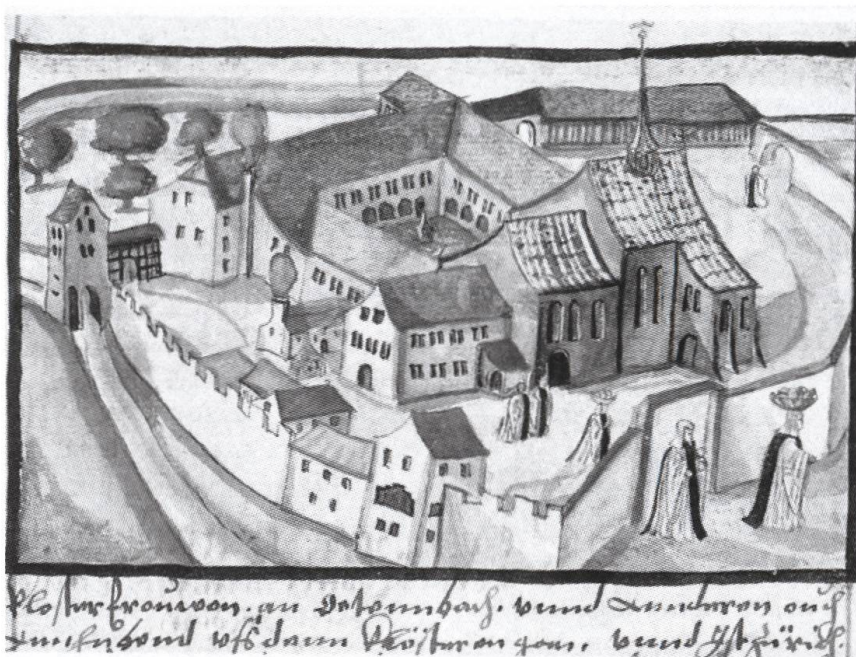 Klosterfrouwen. an Oetennbach. vnnd Annderen ouch
vss denn Klösteren gan. vnnd zürich.